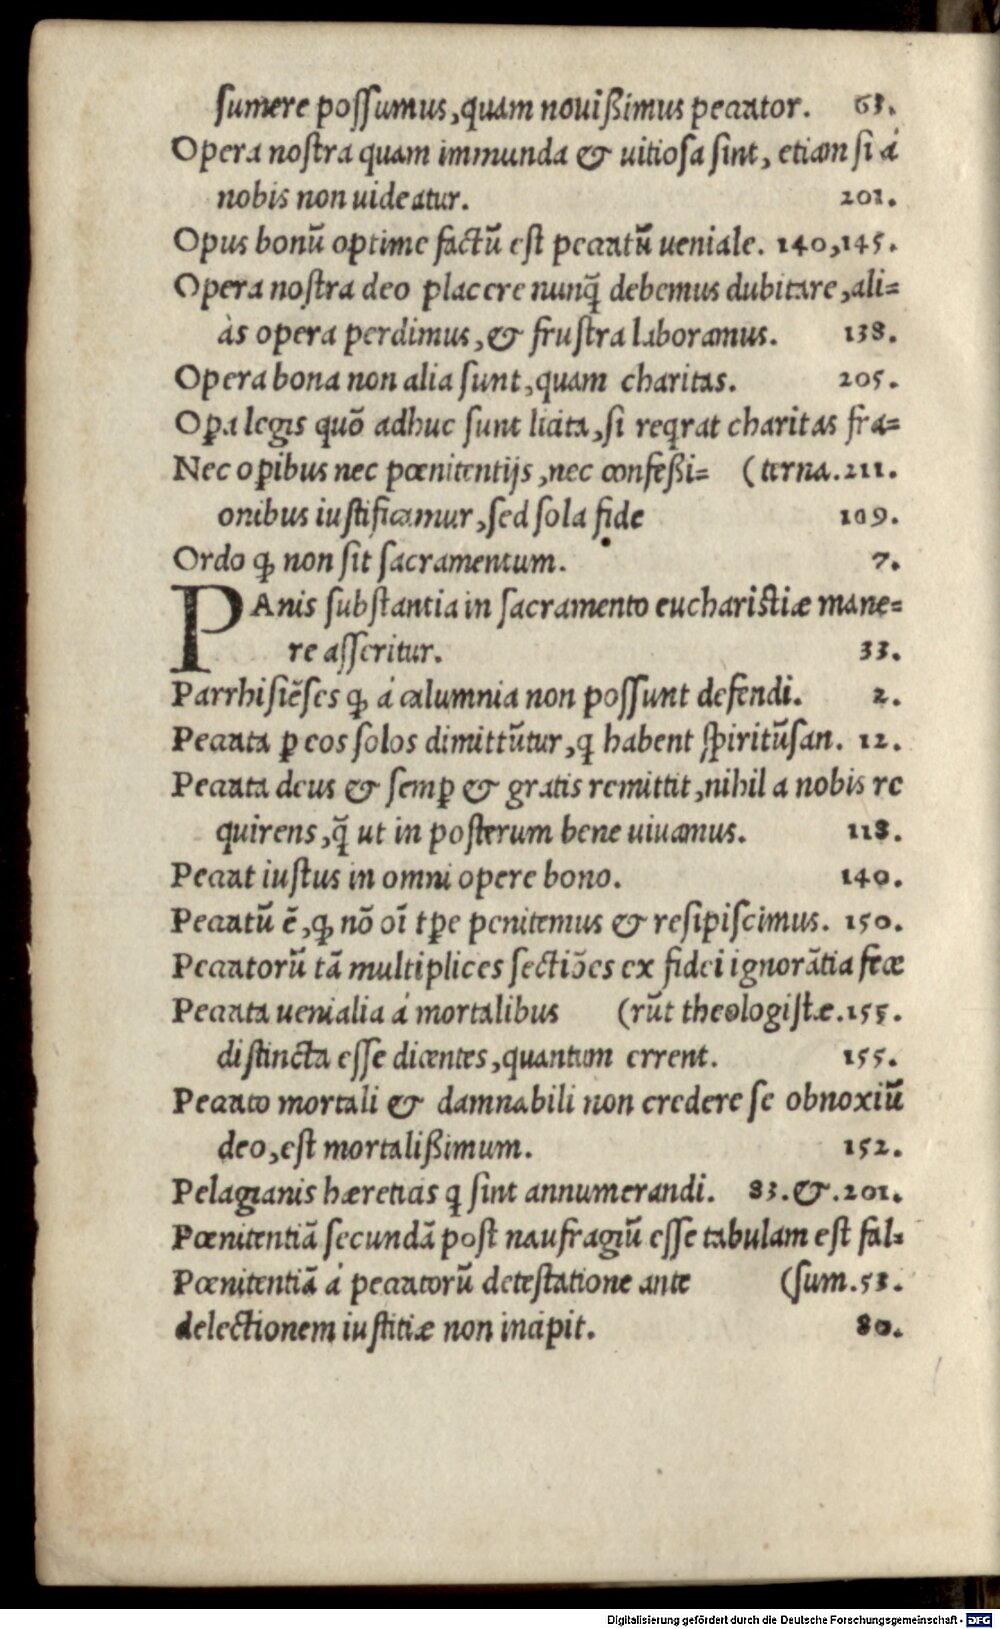 ſumere poſſumus, quam nouißimus peccator. 63.
Opera noſtra quam immunda & uitioſa ſint, etiam ſi á
nobis non uideatur. 201.
Opus bonũ optime factũ eſt peccatũ ueniale. 140, 145.
Opera noſtra deo placere nunq̃ debemus dubitare, ali=
às opera perdimus, & fruſtra laboramus. 138.
Opera bona non alia ſunt, quam charitas. 205.
Oꝑa legis quõ adhuc ſunt licita, ſi reqrat charitas fra=
Nec oꝑibus nec pœnitentijs, nec confeßi= (terna. 211.
onibus iuſtificamur, ſed ſola fide 109.
Ordo ꝙ non ſit ſacramentum. 7.
PAnis ſubſtantia in ſacramento euchariſtiæ mane=
re aſſeritur. 33.
Parrhiſiẽſes ꝙ á calumnia non poſſunt defendi. 2.
Peccata ꝑ eos ſolos dimittũtur, q habent ſpiritũſan. 12.
Peccata deus & ſemꝑ & gratis remittit, nihil a nobis re
quirens, q̃ ut in poſterum bene uiuamus. 118.
Peccat iuſtus in omni opere bono. 140.
Peccatũ ẽ, ꝙ nõ oĩ tꝑe penitemus & reſipiſcimus. 150.
Peccatorũ tã multiplices ſectiões ex fidei ignorãtia fecæ
Peccata uenialia á mortalibus (rũt theologiſtæ. 155.
diſtincta eſſe dicentes, quantum errent. 155.
Peccato mortali & damnabili non credere ſe obnoxiũ
deo, eſt mortalißimum. 152.
Pelagianis hæreticis q ſint annumerandi. 83. &. 201.
Pœnitentiã ſecundã poſt naufragiũ eſſe tabulam eſt fal=
Pœnitentiã á peccatorũ deteſtatione ante (ſum. 53.
delectionem iuſtitiæ non incipit. 80.
Digitalisierung gefördert durch die Deutsche Forschungsgemeinschaft - DFG